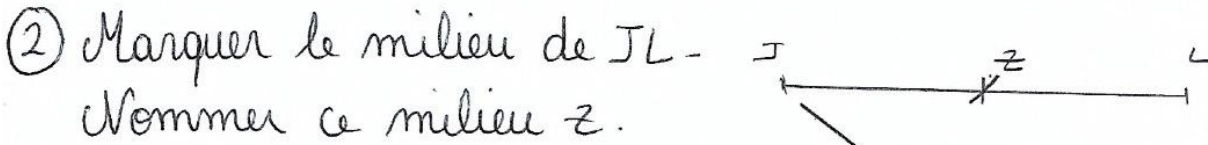 ② Marquer le milieu de JL-
J Z L
Nommer ce milieu z.